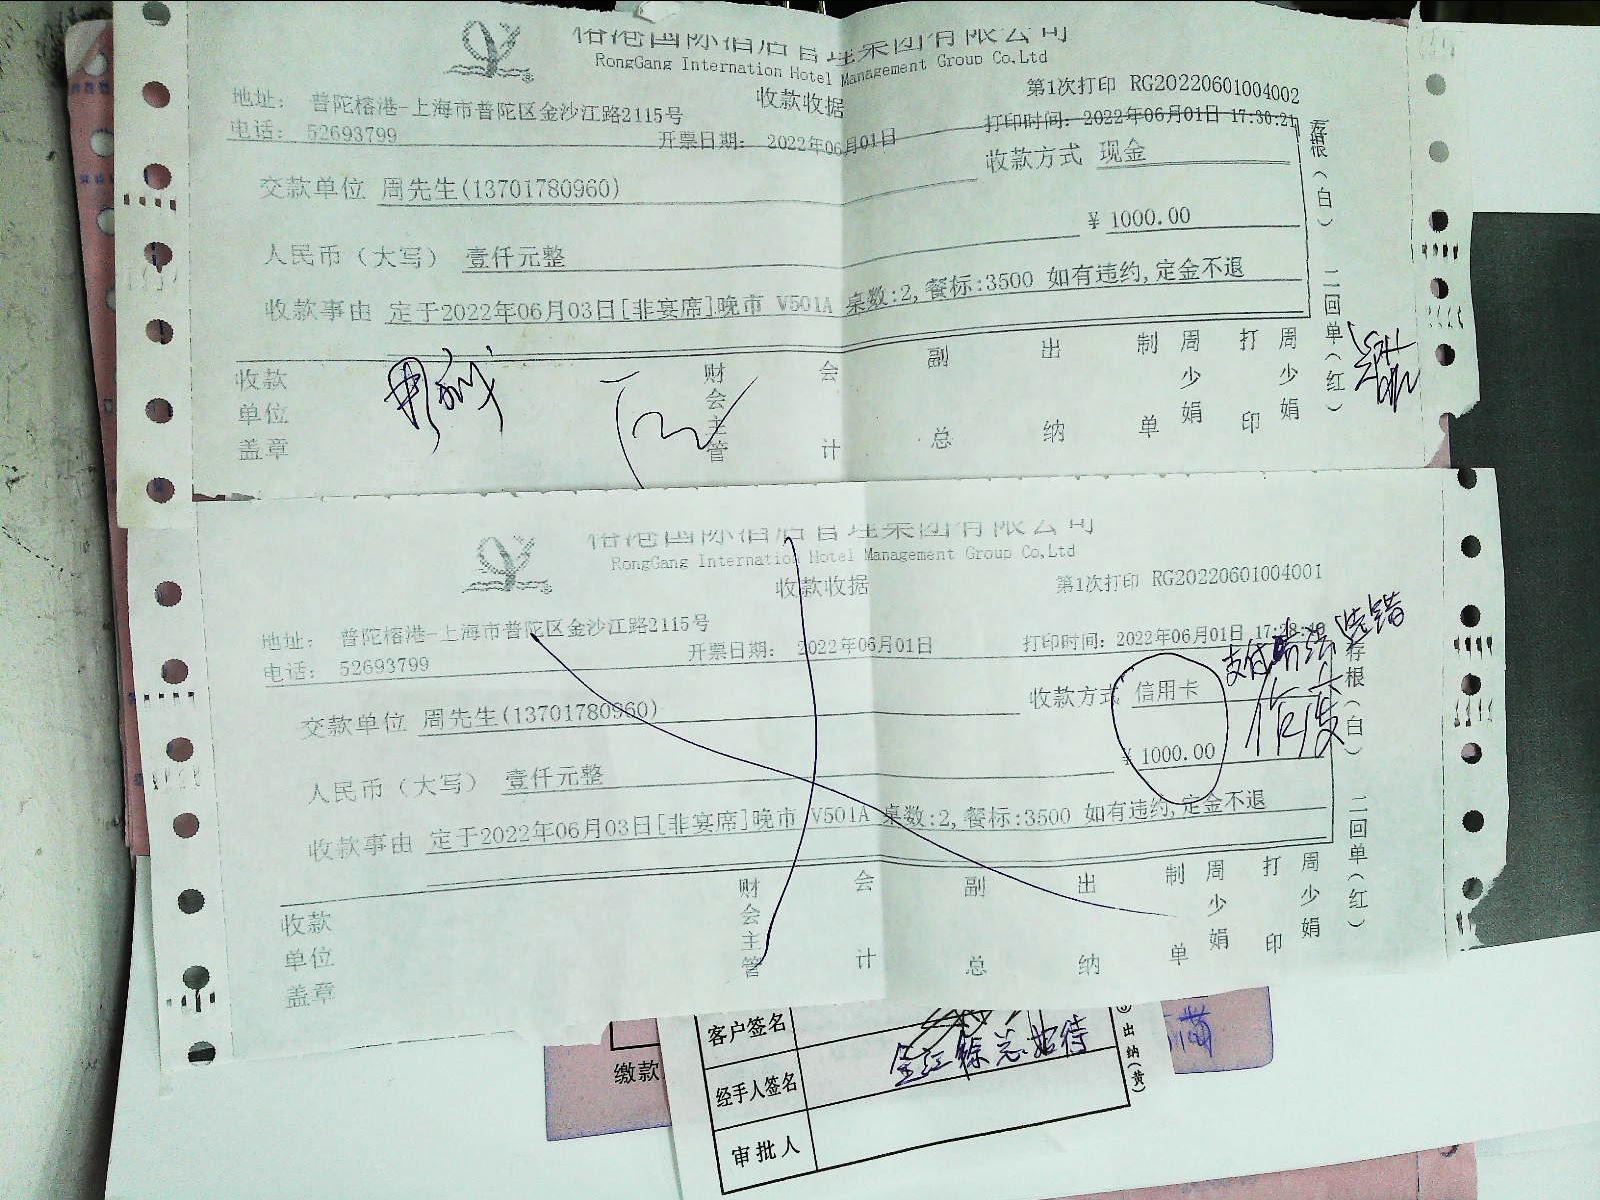 榕港国际酒店管理集团有限公司
RongGang Internation Hotel Management Group Co,Ltd
收款收据
第1次打印 RG20220601004002
地址: 普陀榕港-上海市普陀区金沙江路2115号
电话: 52693799
开票日期: 2022年06月01日
打印时间: 2022年06月01日 17:30:21
交款单位 周先生(13701780960)
收款方式 现金
人民币(大写) 壹仟元整
¥ 1000.00
收款事由 定于2022年06月03日[非宴席]晚市 V501A 桌数:2,餐标:3500 如有违约,定金不退
收款单位盖章
财会主管
会计
副总
出纳
制单
周少娟
打印
周少娟
存根(白) 二回单(红)
榕港国际酒店管理集团有限公司
RongGang Internation Hotel Management Group Co,Ltd
收款收据
第1次打印 RG20220601004001
地址: 普陀榕港-上海市普陀区金沙江路2115号
电话: 52693799
开票日期: 2022年06月01日
打印时间: 2022年06月01日 17:28
选错
作废
交款单位 周先生(13701780960)
收款方式 信用卡
人民币(大写) 壹仟元整
¥ 1000.00
收款事由 定于2022年06月03日[非宴席]晚市 V501A 桌数:2,餐标:3500 如有违约,定金不退
收款单位盖章
财会主管
会计
副总
出纳
制单
周少娟
打印
周少娟
存根(白) 二回单(红)
客户签名
缴款
经手人签名
审批人
出纳(黄)